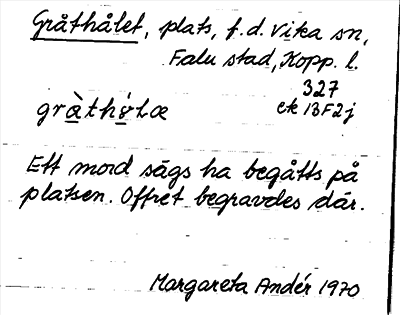 Gråthålet, plats, f.d. Vika sn,
Falu stad, Kopp. l.
327
ek 13F2j
Ett mord sägs ha begåtts på
platsen. Offret begravdes där.
Margareta Andér 1970